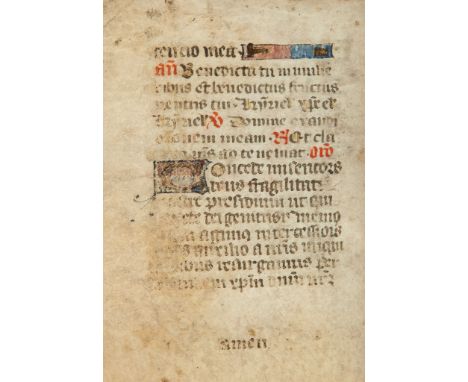 tencio mea
añ Benedicta tu in mulie
ribus et benedictus fructus
ventris tui. kyriel xpe el
kyriel ℣ Domine exaudi
oronem meam. ℟ Et cla
ad te veniat. oro
Concede misericors
deus fragilitati
presidium ut qui
dei genitricis memo
agimus intercessiois
auxilio a nris iniqui
tatibus resurgamus per
xpm dnm nrm
amen